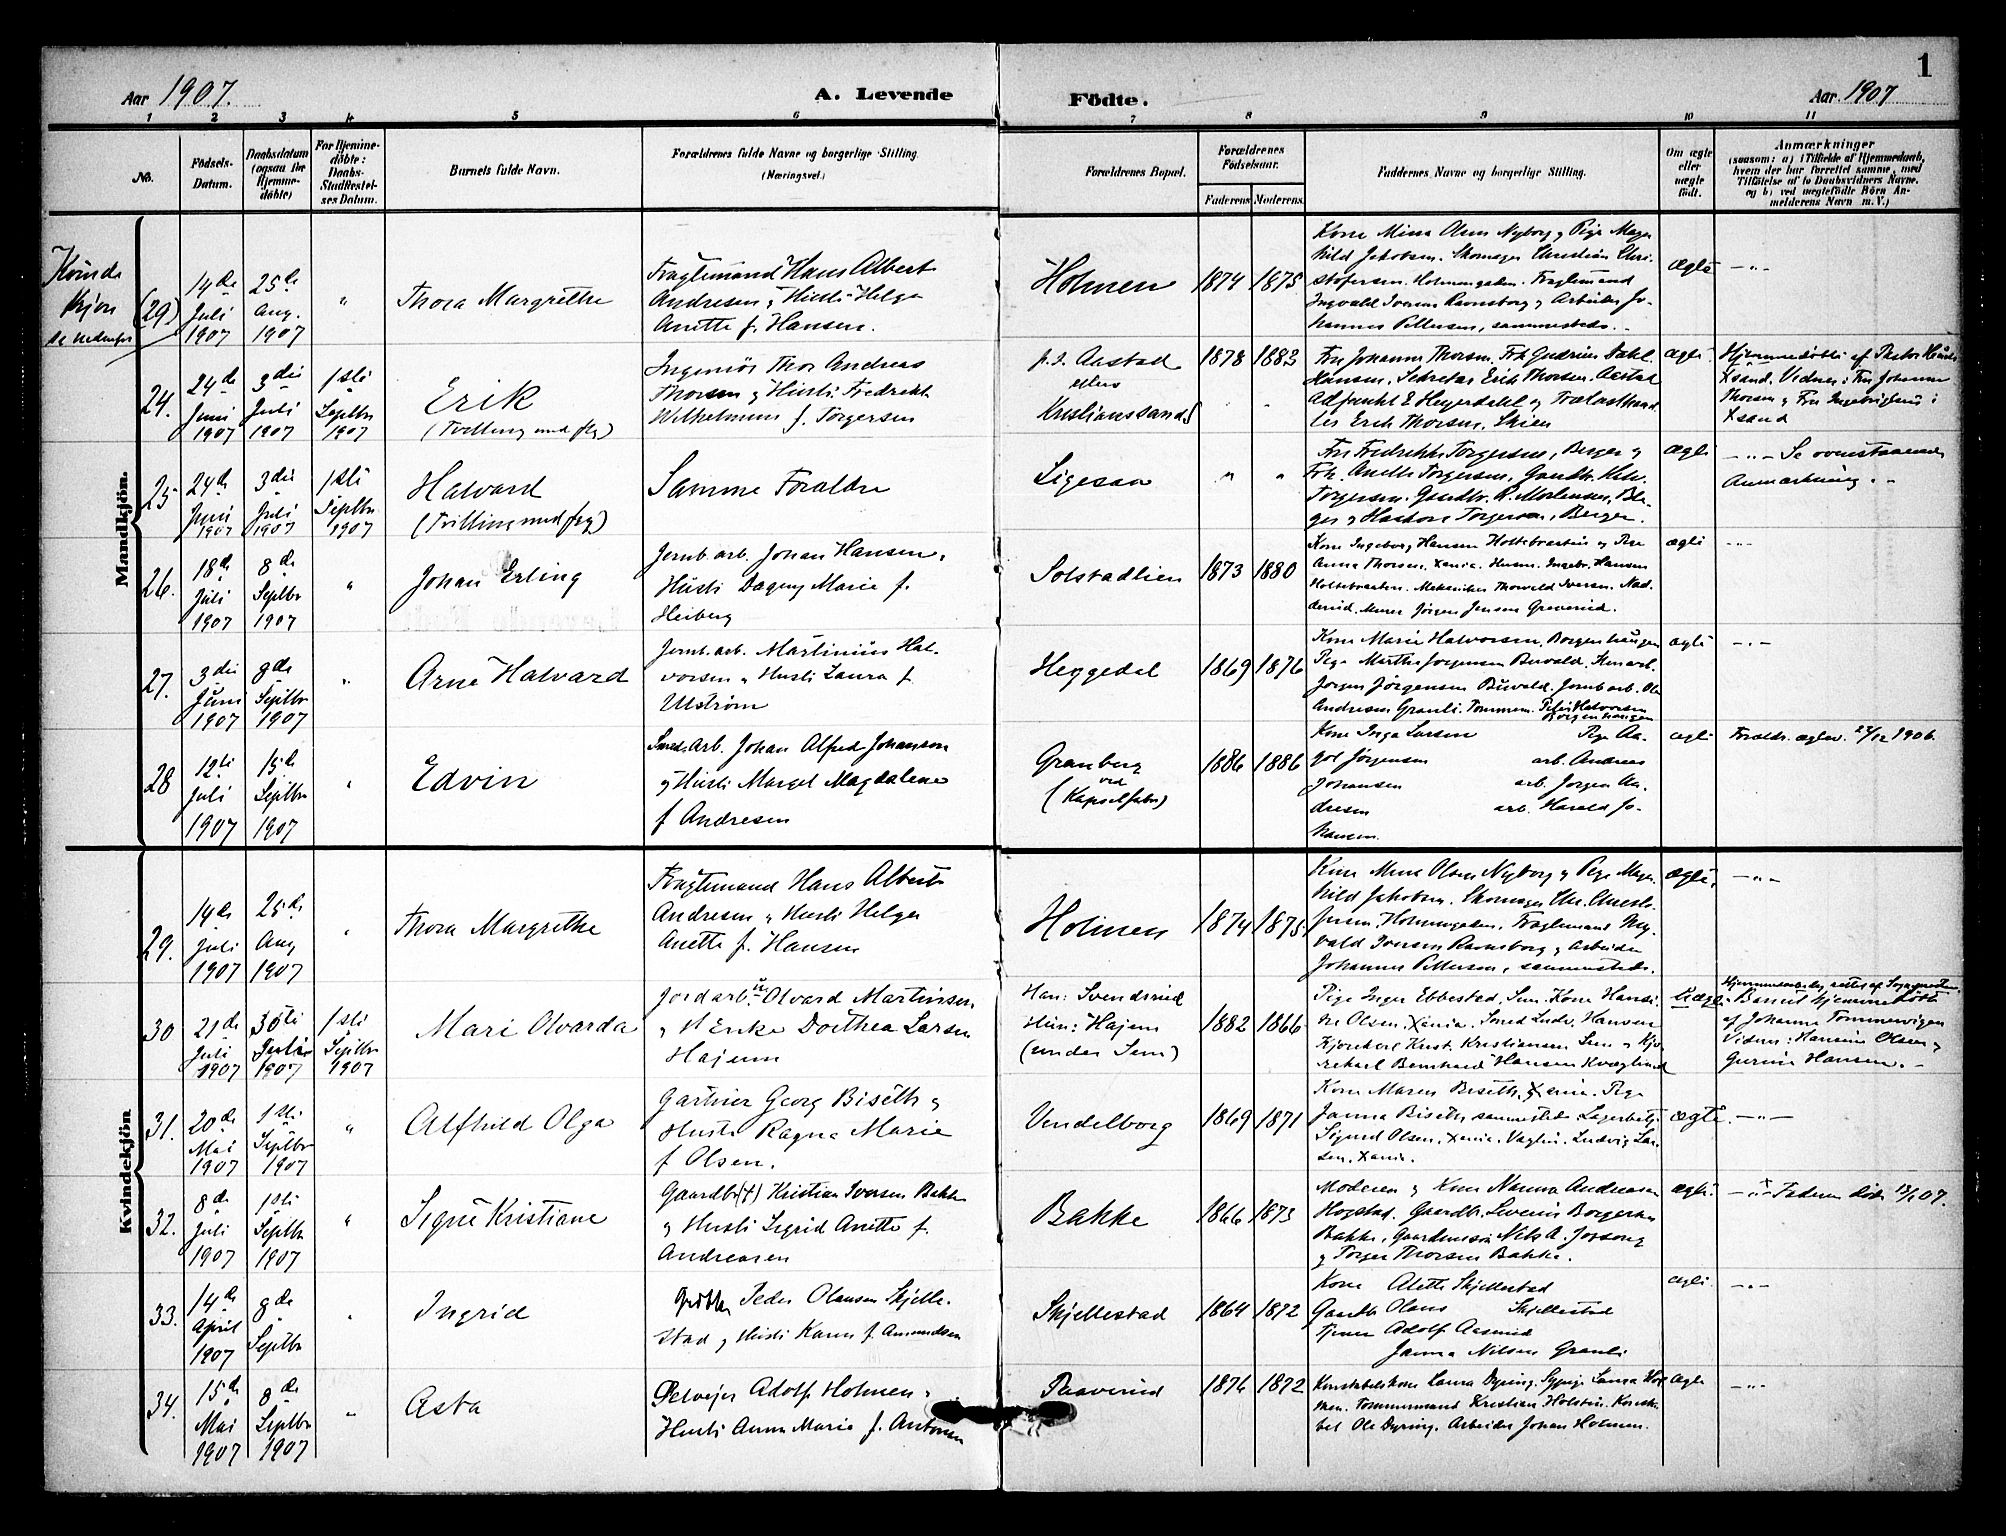 1
Aar 1907.
A. Levende
Födte.
Aar 1907
1 2 3 4 5 6 7 8 9 10 11
No.
Födsels-Datum.
Daabsdatum (ogsaa for Hjemme-döbte)
For Hjemme-döbte: Daabs-Stadfæstel-ses Datum.
Barnets fulde Navn.
Forældrenes fulde Navne og borgerlige Stilling.
(Næringsvei.)
Forældrenes Bopæl.
Forældrenes Födselsaar.
Faderens Moderens
Faddernes Navne og borgerlige Stilling.
Om ægte eller uægte födt.
Anmærkninger
(saasom: a) i Tilfælde af Hjemmedaab,
hvem der har forrettet samme, med
Tilföielse af to Daabsvidners Navne,
og b) ved uægtefödte Börn An-
melderens Navn m. V.)
Mandkjön.
Kvindekjön
Kvinde
kjøn
se nedenfor
(29)
14de Juli 1907
25de Aug. 1907
"
Thora Margrethe
Fragtemand Hans Albert
Andresen & Hustr. Helga
Anette f. Hansen.
Holmen
1874 1875
Kone Mina Olsen Nyborg & Pige Mag-
hild Jakobsen. Skomager Christian Chri-
stofersen. Holmengaden. Fragtemand
Ingvald Iversen Ravnsborg & Arbeider Jo-
hannes Pettersen, sammesteds.
ægte
—"—
24.
24de Juni 1907
3die Juli 1907
1ste Septbr 1907
Erik
(Tvilling med flg)
Ingeniør Thor Andreas
Thorsen & Hustr. Fredrikke
Wilhelmine f. Jørgensen
p.t. Aastad
ellers
Kristianssand S
1878 1883
Fru Johanne Thorsen. Frk Gudrun Dahl
Hansen, Sekretær Erik Thorsen, Aastad
Adjunkt E Heyerdahl og Trælasthand
ler Erik Thorsen, Skien
ægte
Hjemmedøbt af Pastor
Xsand. Vidner: Fru Johanne
Thorsen & Fru Ingebrigtsen i
Xsand
25
24de Juni 1907
3die Juli 1907
1ste Septbr 1907
Halvard
(Tvilling med frg)
Samme Forældre
Ligesaa
" "
Fru Fredrikke Torgersen, Berger &
Frk. Anette Torgersen, Gaardbr.
Torgersen. Gaardbr. R. Mortensen, Ber-
ger & Haakon Torgersen, Berger.
ægte
—"— Se ovenstaaende
Anmærkning
26.
18de Juli 1907
8de Septbr 1907
"
Johan Erling
Jernb.arb. Johan Hansen &
Hustr. Dagny Marie f.
Heiberg
Solstadlien
1873 1880
Kone Ingeborg Hansen Holtebraaten & Pige
Anna Thorsen, Xania. Husm. Ingebr. Hansen
Holtebraaten. Mekaniker Thorvald Iversen. Nad-
derud. Murer Jørgen Jensen Greverud.
ægte
—"—
27.
3die Juni 1907
8de Septbr 1907
"
Arne Halvard
Jernb.arb. Martinius Hal-
vorsen & Hustr. Laura f.
Ulstrøm
Heggedal
1869 1876
Kone Marie Halvorsen, Borgenhaugen
Pige Marthe Jørgensen Buvold. Stenarb.
Jørgen Jørgensen Buvold. Jernb.arb. Ole
Andresen Granli. Tømmerm. Peter Halvorsen
Borgenhaugen
ægte
—"—
28
12te Juli 1907
15de Septbr 1907
"
Edvin
Smed.Arb. Johan Alfred Johansson
& Hustr. Margit Magdalene
f Andresen
Granberg
ved
(Kapselfabr)
1886 1886
Kone Inga Larsen Pige Aa-
got Jørgensen arb. Andreas
Johansen arb. Jørgen An-
dresen arb. Harald Jo-
hansen.
ægte
Forældr. ægtev. 26/12 1906
29.
14de Juli 1907
25de Aug 1907
"
Thora Margrethe
Fragtemand Hans Albert
Andresen & Hustr. Helga
Anette f. Hansen
Holmen
1874 1875.
Kone Mina Olsen Nyborg & Pige Mag-
hild Jakobsen. Skomager Chr. Christo-
fersen, Holmengaden. Fragtemand Ing-
vald Iversen Ravnsborg & Arbeider
Johannes Pettersen, sammesteds.
ægte.
—"—
30
21de Juli 1907
30te Juli 1907
1ste Septbr 1907
Mari Olvarda
Jordarb. Uk. Olvard Martinsen
& Enke Dorthea Larsen
Hajem
Han: Svendsrud
Hun: Hajem
(under Sem)
1882 1866
Pige Inger Ebbestad, Sem. Kone Hansi-
ne Olsen, Xania. Smed Ludv. Hansen
Kjørekarl Krist. Kristiansen Sem & Kjø-
rekarl Bernhard Hansen Kvæglund
Uægte
Barnet Hjemmedøbt
af Johanne Tømmervigen
Vidner: Hansine Olsen &
Gurine Hansen.
31.
20de Mai 1907
1ste Septbr 1907
"
Alfhild Olga
Gartner Georg Biseth &
Hustr. Ragna Marie
f Olsen.
Vendelborg
1869 1871
Kone Maren Biseth, Xania. Pige
Janna Biseth, sammesteds. Lagerbetj.
Sigurd Olsen, Xania. Vagtm. Ludvig Lar-
sen. Xania.
ægte.
—"—
32.
8de Juli 1907
1ste Septbr 1907
"
Signe Kristiane
Gaardbr. (†) Kristian Iversen Bakke
& Hustr. Sigrid Anette f.
Andreasen
Bakke
1866 1873
Moderen & Kone Nanna Andreasen
Hogstad. Gaardbr. Severin Borgersen
Bakke, Gaardmandssøn Nils A. Jossong
& Torger Thorsen Bakke.
ægte
—"— x Faderen død 13/1 07.
33.
14de April 1907
8de Septbr
"
Ingrid
Grdbr. Peder Olausen Skjelle-
stad & Hustr. Karen f. Amundsen
Skjellestad
1864 1872
Kone Alette Skjellestad
Gaardb. Olaus Skjellestad
Tjener Adolf Aasmid
Janna Nilsen Granli
ægte.
—"—
34.
15de Mai 1907
8de Septbr 1907
"
Asta
Opsveiser Adolf Holmen &
Hustr. Anna Marie f. Antonsen
Paaverud
1876 1872
Konstabelskone Laura Dyring. Sypige Laura Hol-
men. Tømmermand Kristian Holstein. Konsta-
bel Ole Dyring. Arbeider Johan Holmen.
ægte
—"—